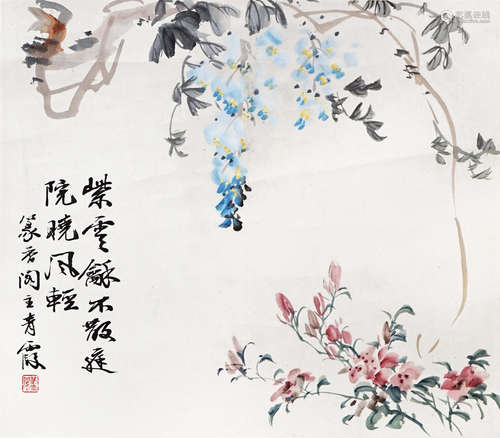 紫雲龢不散庭
院曉風輕
篆香阁主青霞